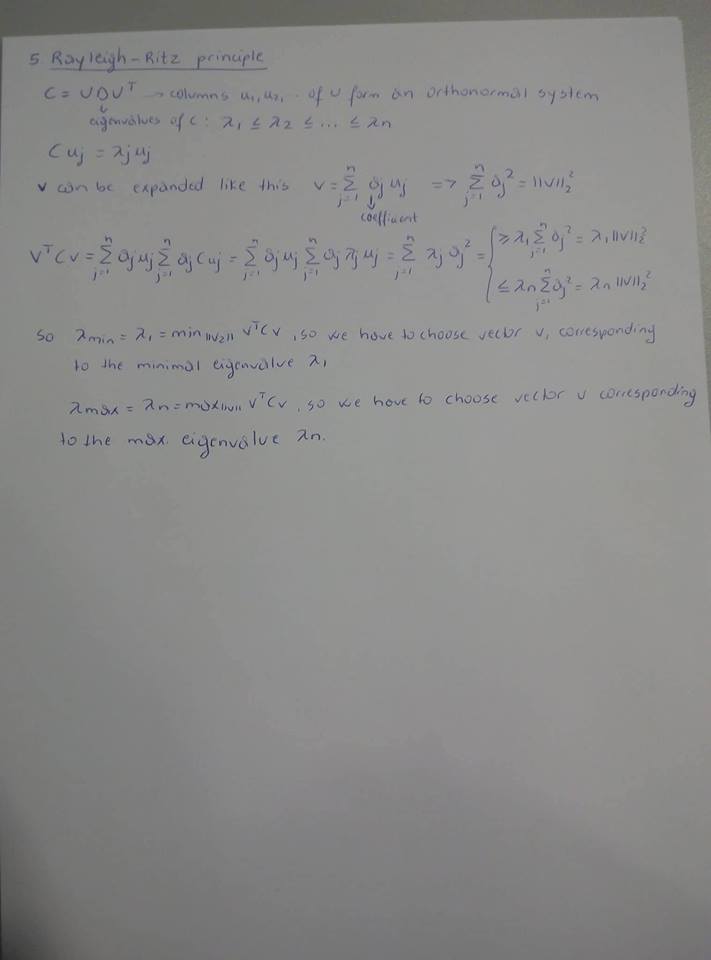 5. Rayleigh-Ritz principle
C = UDUᵀ → columns u₁, u₂, . of U form an orthonormal system
↓
eigenvalues of C : λ₁ ≤ λ₂ ≤ ... ≤ λn
C uj = λj uj
v can be expanded like this v = Σⁿⱼ₌₁ ∂j uj => Σⁿⱼ₌₁ ∂j² = ||v||₂²
↓
coefficient
VᵀCv = Σⁿⱼ₌₁ ∂j uj Σⁿⱼ₌₁ ∂j C uj = Σⁿⱼ₌₁ ∂j uj Σⁿⱼ₌₁ ∂j λj uj = Σⁿⱼ₌₁ λj ∂j² = { ≥ λ₁ Σⁿⱼ₌₁ ∂j² = λ₁ ||v||₂²
≤ λn Σⁿⱼ₌₁ ∂j² = λn ||v||₂²
So λmin = λ₁ = min||v₂|| VᵀCv , so we have to choose vector v, corresponding
to the minimal eigenvalue λ₁
λmax = λn = max||v|| VᵀCv , so we have to choose vector v corresponding
to the max. eigenvalue λn.